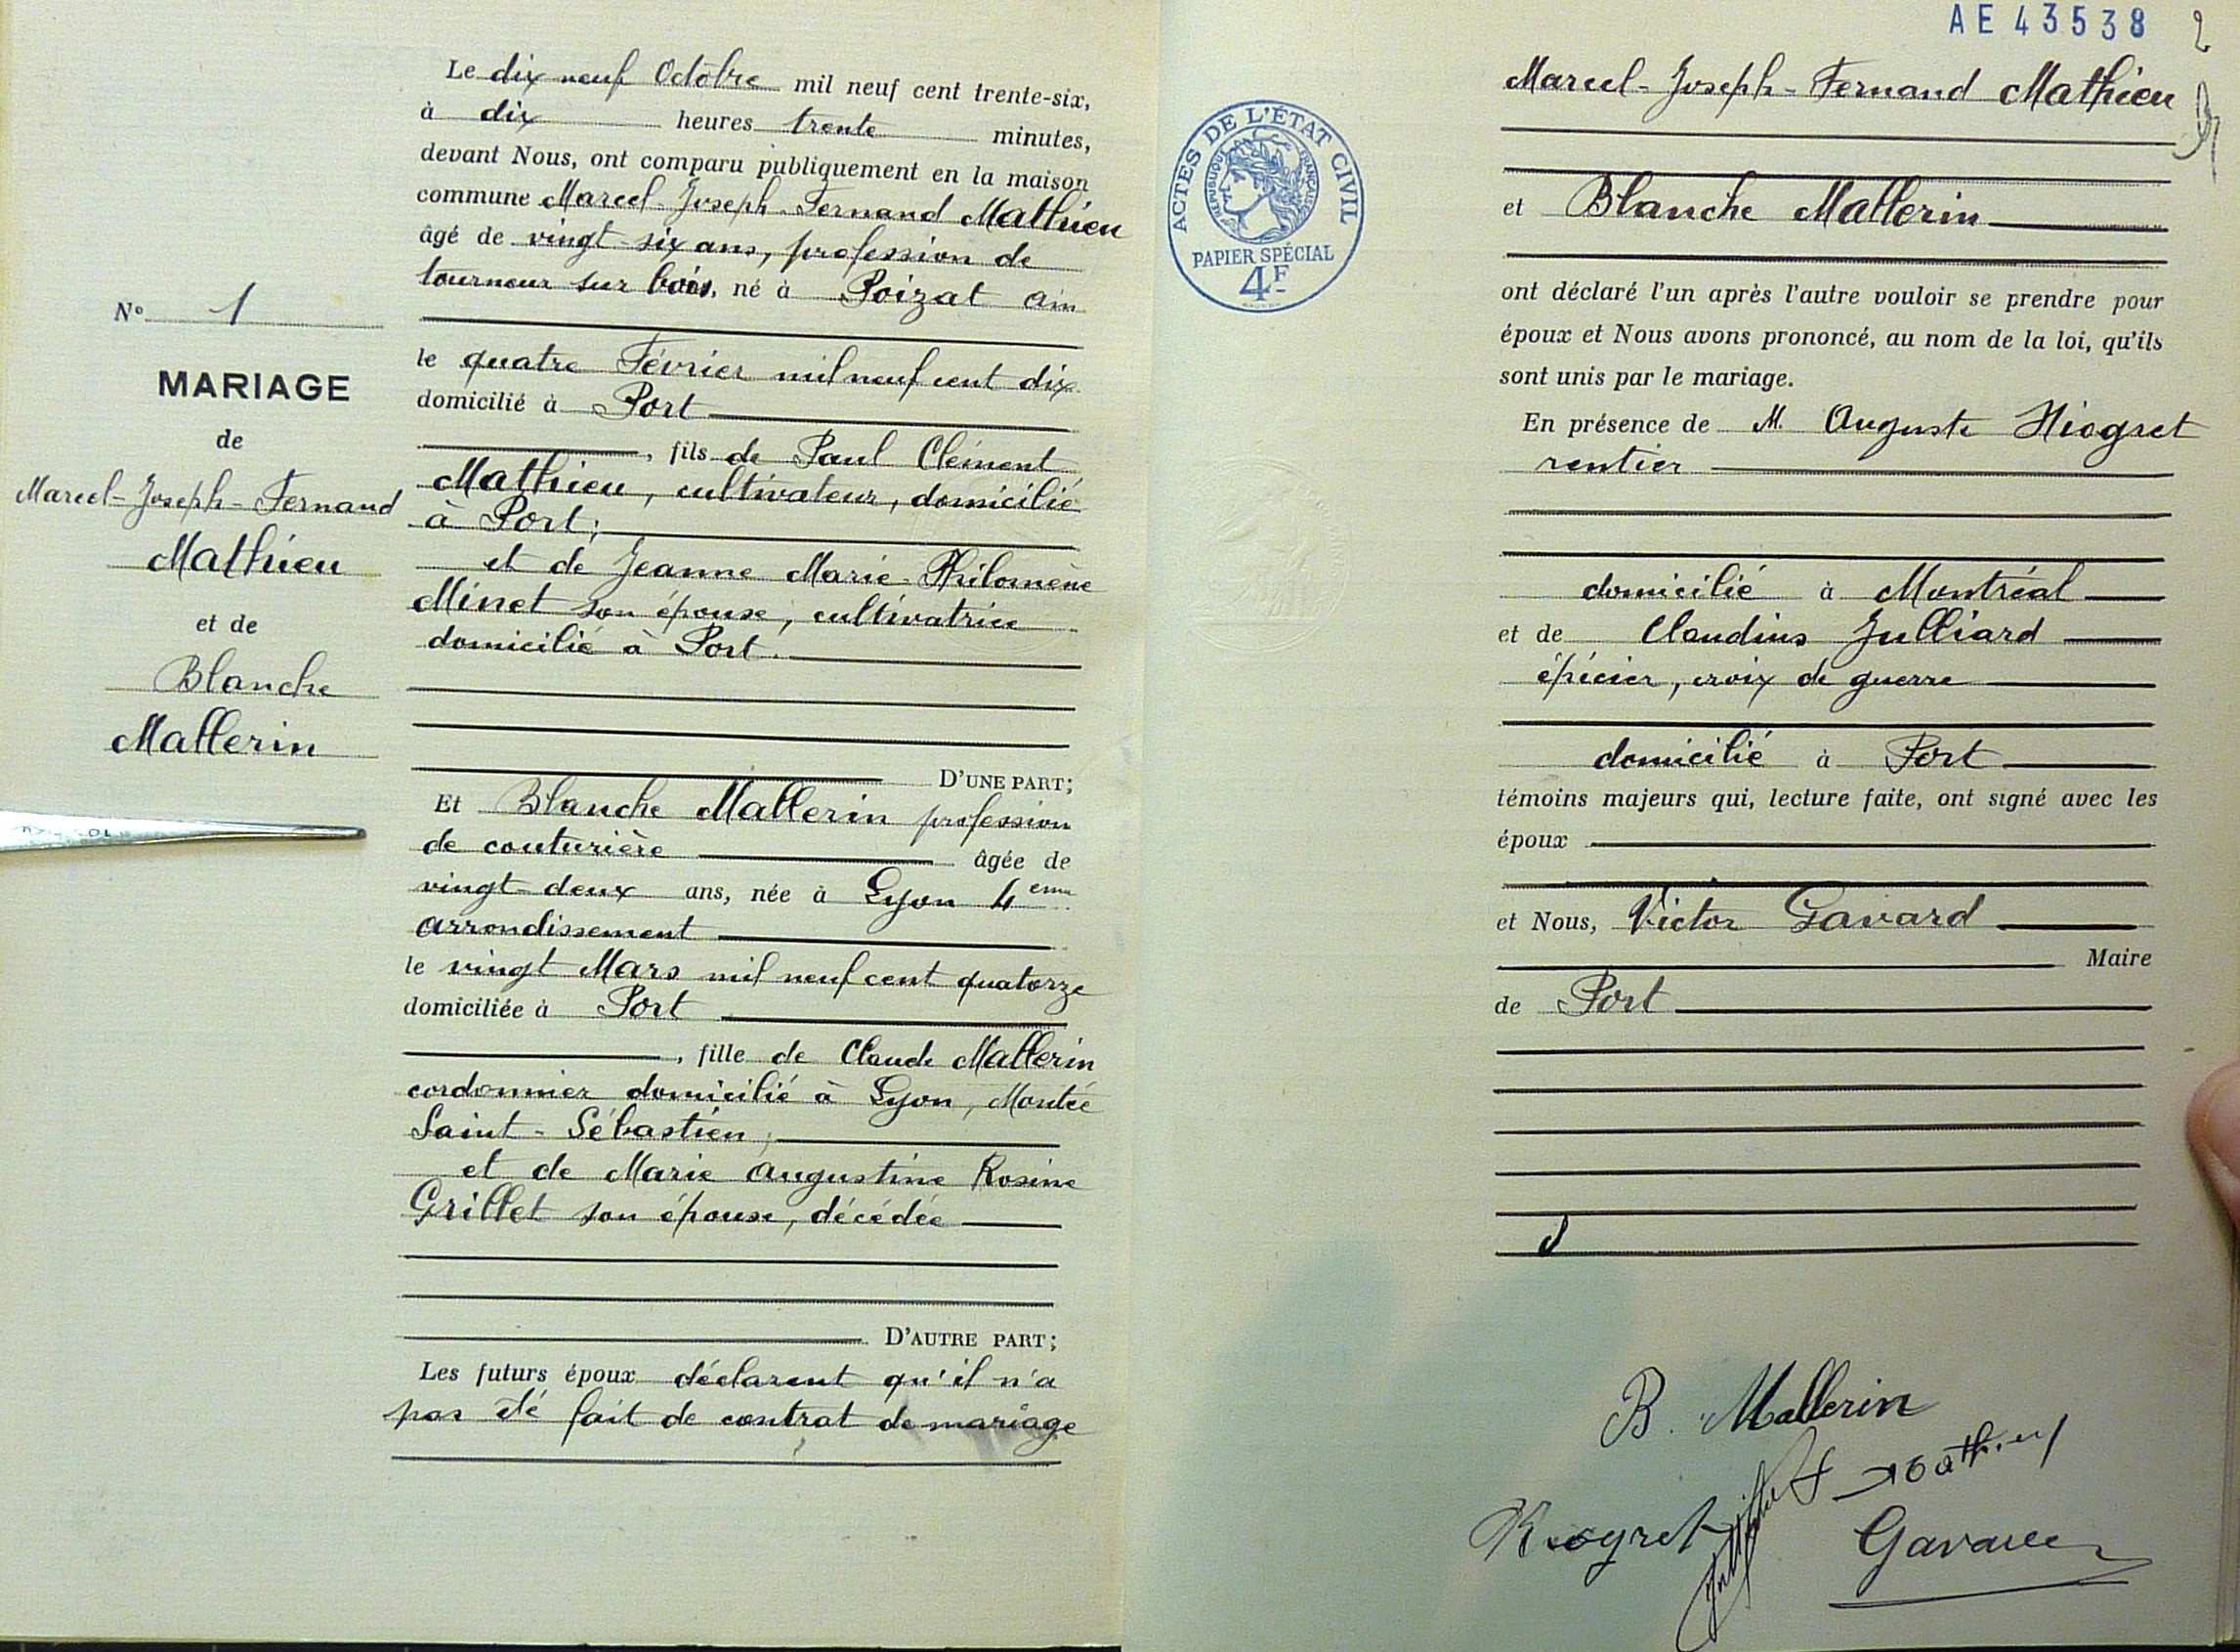 Le dix neuf Octobre mil neuf cent trente-six,
à dix heures trente minutes,
devant Nous, ont comparu publiquement en la maison
commune Marcel-Joseph-Fernand Mathieu
âgé de vingt-six ans, profession de
tourneur sur bois, né à Poizat ain
le quatre Février mil neuf cent dix
domicilié à Port
, fils de Paul Clément
Mathieu, cultivateur, domicilié
à Port;
et de Jeanne Marie-Philomène
Minet son épouse, cultivatrice
domicilié à Port.
D'UNE PART;
Et Blanche Mallerin profession
de couturière âgée de
vingt-deux ans, née à Lyon 4eme
arrondissement
le vingt Mars mil neuf cent quatorze
domiciliée à Port
, fille de Claude Mallerin
cordonnier domicilié à Lyon, Montée
Saint-Sébastien,
et de Marie Augustine Rosine
Grillet son épouse, décédée
D'AUTRE PART;
Les futurs époux déclarent qu'il n'a
pas été fait de contrat de mariage
No 1
MARIAGE
de
Marcel-Joseph-Fernand
Mathieu
et de
Blanche
Mallerin
AE 43538
2
ACTES DE L'ÉTAT CIVIL
RÉPUBLIQUE FRANÇAISE
PAPIER SPÉCIAL
4F
Marcel-Joseph-Fernand Mathieu
et Blanche Mallerin
ont déclaré l'un après l'autre vouloir se prendre pour
époux et Nous avons prononcé, au nom de la loi, qu'ils
sont unis par le mariage.
En présence de M. Auguste
rentier
domicilié à Montréal
et de Claudius Julliard
épicier, croix de guerre
domicilié à Port
témoins majeurs qui, lecture faite, ont signé avec les
époux
et Nous, Victor Gavard
Maire
de Port
B. Mallerin
Mathieu
Gavard